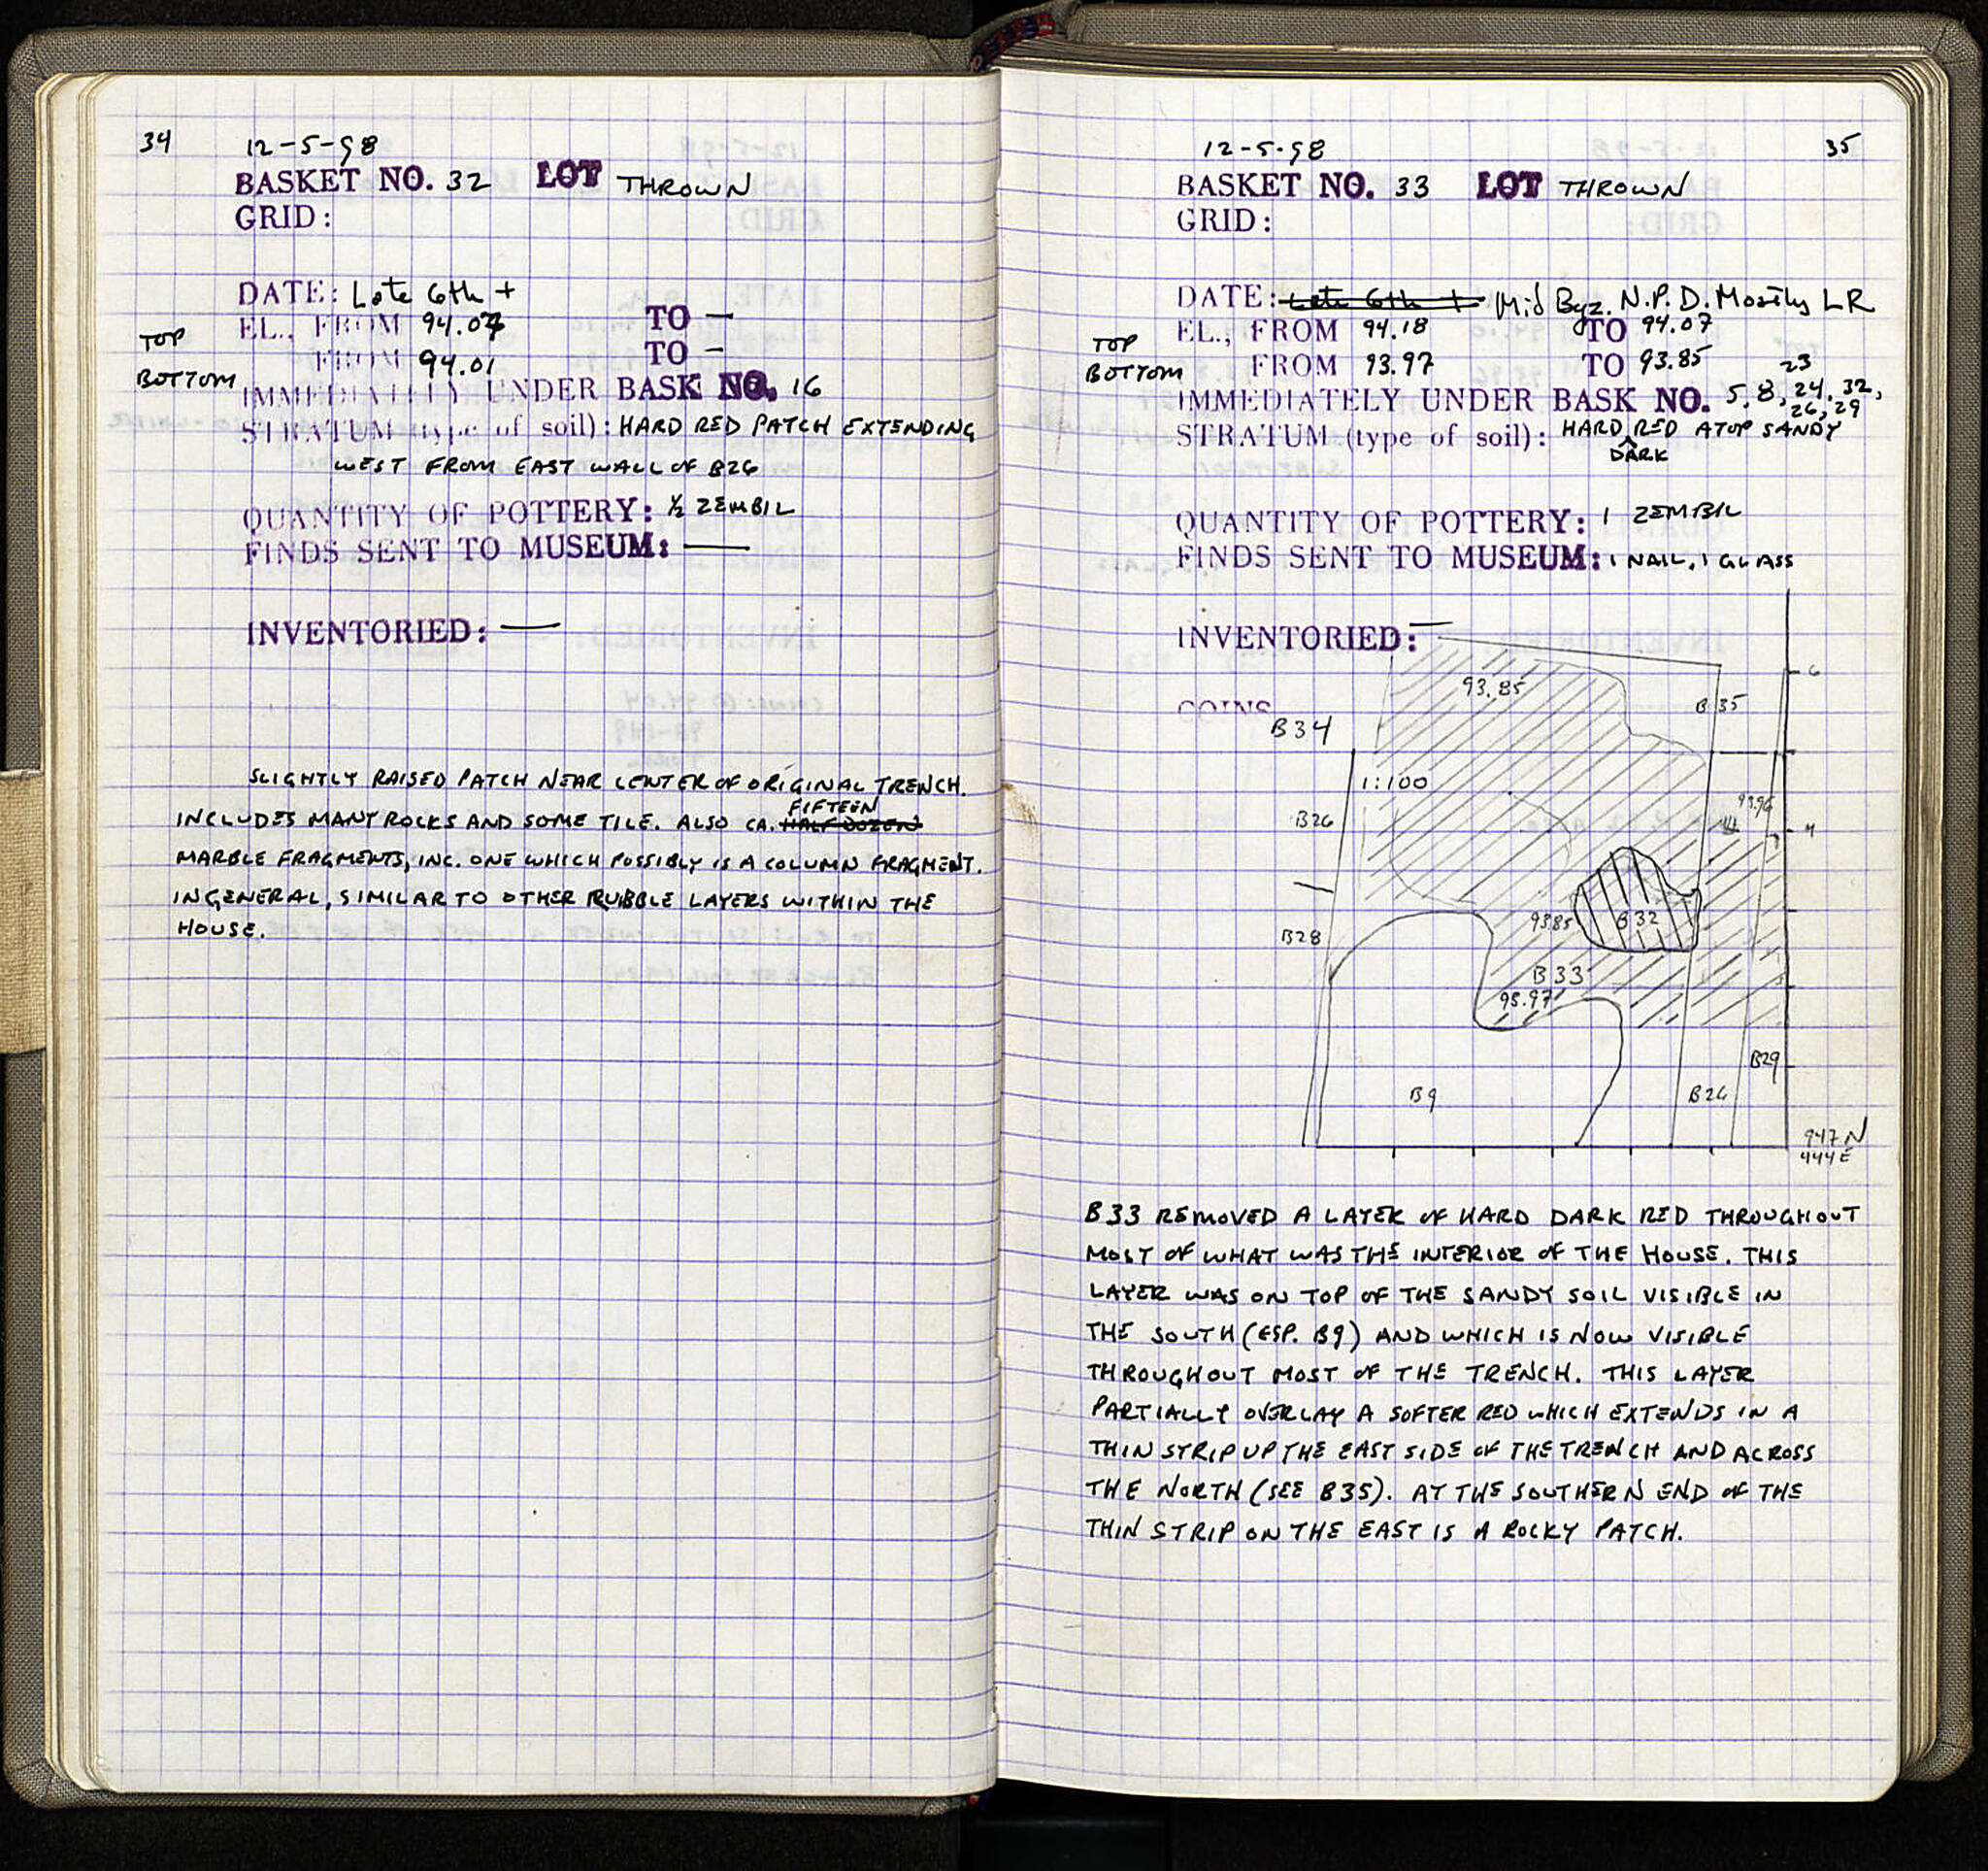 34
12-5-98
BASKET NO. 32 LOT THROWN
GRID:
DATE: Late 6th +
TOP EL., FROM 94.07 TO —
BOTTOM FROM 94.01 TO —
IMMEDIATELY UNDER BASK NO. 16
STRATUM (type of soil): HARD RED PATCH EXTENDING
WEST FROM EAST WALL OF B26
QUANTITY OF POTTERY: ½ ZEMBIL
FINDS SENT TO MUSEUM: —
INVENTORIED: —
SLIGHTLY RAISED PATCH NEAR CENTER OF ORIGINAL TRENCH.
FIFTEEN
INCLUDES MANY ROCKS AND SOME TILE. ALSO CA. HALF DOZEN
MARBLE FRAGMENTS, INC. ONE WHICH POSSIBLY IS A COLUMN FRAGMENT.
IN GENERAL, SIMILAR TO OTHER RUBBLE LAYERS WITHIN THE
HOUSE.
12-5-98
35
BASKET NO. 33 LOT THROWN
GRID:
DATE: Late 6th + Mid Byz. N.P.D. Mostly LR
TOP EL., FROM 94.18 TO 94.07
BOTTOM FROM 93.97 TO 93.85
23
IMMEDIATELY UNDER BASK NO. 5, 8, 24, 32,
26, 29
STRATUM (type of soil): HARD RED ATOP SANDY
DARK
QUANTITY OF POTTERY: 1 ZEMBIL
FINDS SENT TO MUSEUM: 1 NAIL, 1 GLASS
INVENTORIED: —
COINS
6
93.85
B35
B34
1:100
93.96
B26
4
93.85
B32
B28
B33
93.97
B29
B9
B26
947 N
444 E
B33 REMOVED A LAYER OF HARD DARK RED THROUGHOUT
MOST OF WHAT WAS THE INTERIOR OF THE HOUSE. THIS
LAYER WAS ON TOP OF THE SANDY SOIL VISIBLE IN
THE SOUTH (ESP. B9) AND WHICH IS NOW VISIBLE
THROUGHOUT MOST OF THE TRENCH. THIS LAYER
PARTIALLY OVERLAY A SOFTER RED WHICH EXTENDS IN A
THIN STRIP UP THE EAST SIDE OF THE TRENCH AND ACROSS
THE NORTH (SEE B35). AT THE SOUTHERN END OF THE
THIN STRIP ON THE EAST IS A ROCKY PATCH.